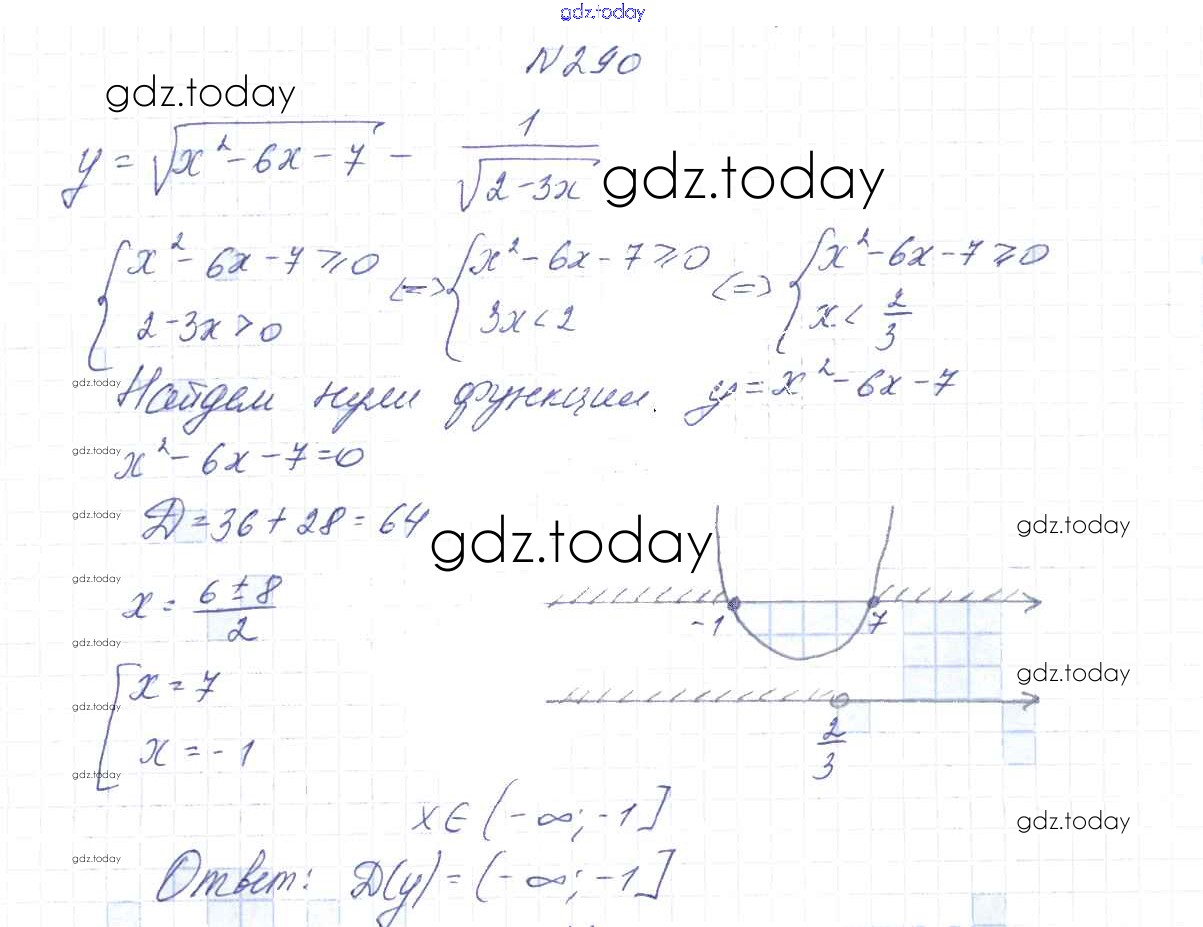 gdz.today
N290
gdz.today
y = √(x² - 6x - 7) - 1/√(2 - 3x) gdz.today
{x² - 6x - 7 ≥ 0 (=) {x² - 6x - 7 ≥ 0 (=) {x² - 6x - 7 ≥ 0
2 - 3x > 0 3x < 2 x < 2/3
gdz.today Найдем нули функции. y = x² - 6x - 7
gdz.today x² - 6x - 7 = 0
gdz.today D = 36 + 28 = 64 gdz.today gdz.today
gdz.today x = (6 ± 8)/2
-1 7
gdz.today
[x = 7 gdz.today
gdz.today
x = -1 2/3
gdz.today
x ∈ (-∞; -1] gdz.today
gdz.today
Ответ: D(y) = (-∞; -1]